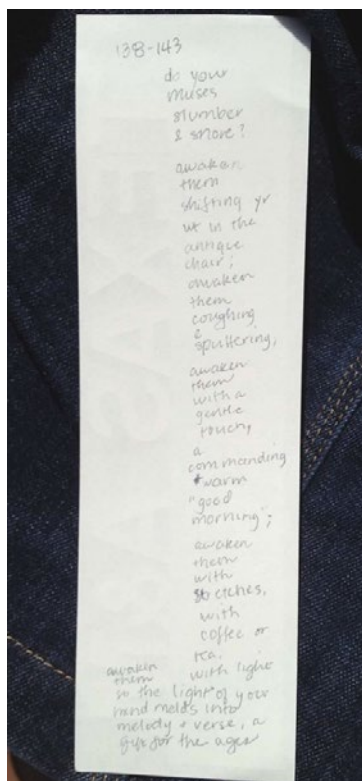 138-143
do your
muses
slumber
& snore?
awaken
them
shifting yr
wt in the
antique
chair;
awaken
them
coughing
&
sputtering,
awaken
them
with a
gentle
touch,
a
commanding
+ warm
"good
morning";
awaken
them
with
stretches,
with
coffee or
tea.
awaken
them with light
so the light of your
mind melds into
melody + verse, a
gift for the ages